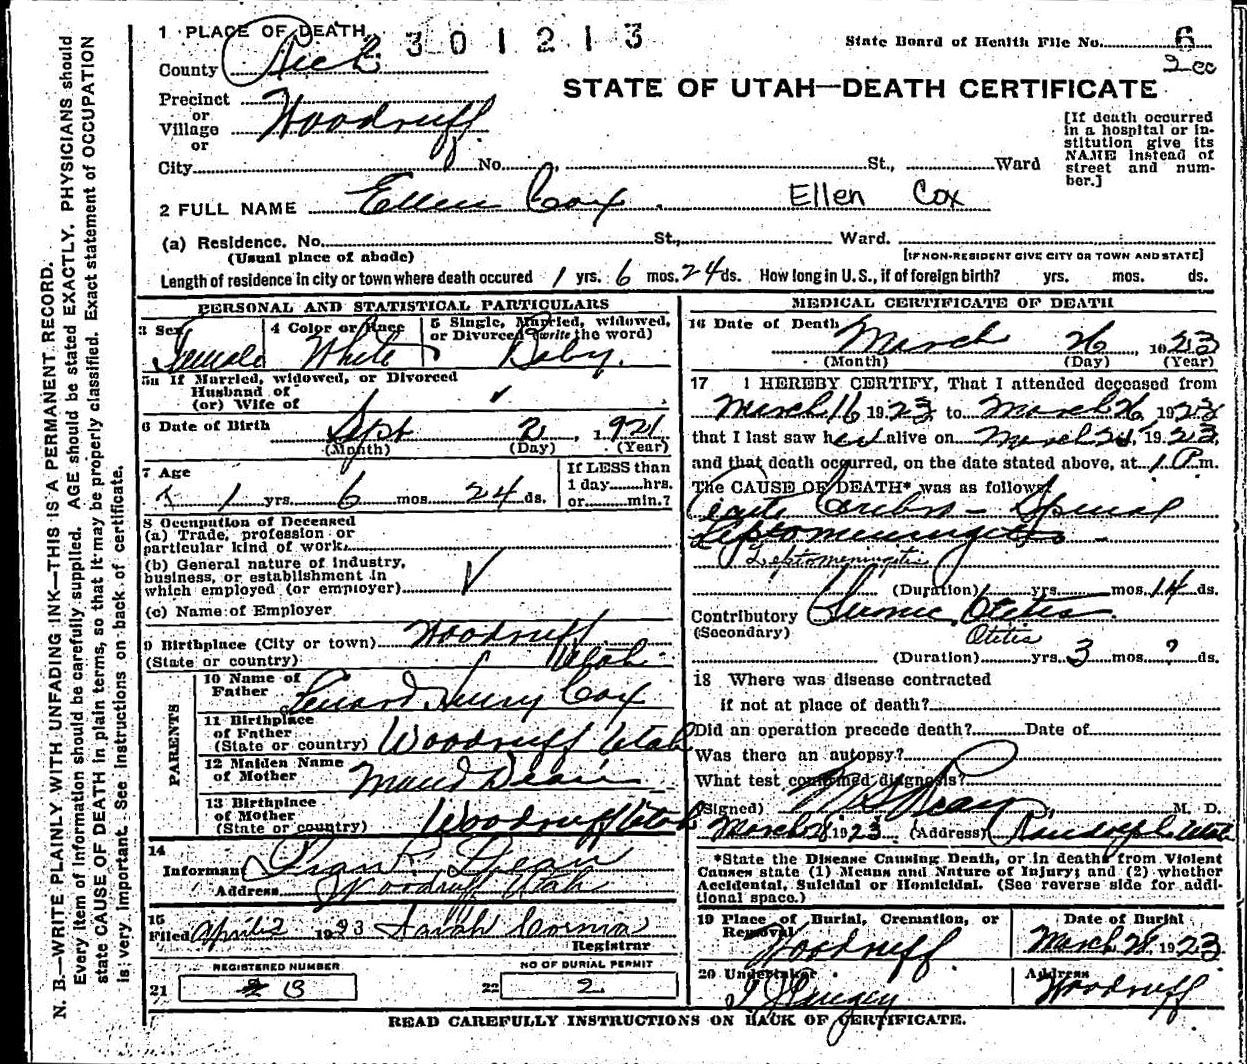 1 PLACE OF DEATH
2301213
State Board of Health File No. 6
2 cc
County Rich
STATE OF UTAH—DEATH CERTIFICATE
Precinct
or
Village Woodruff
or
[If death occurred in a hospital or institution give its NAME instead of street and number.]
City No. St., Ward
2 FULL NAME Ellen Cox. Ellen Cox
(a) Residence. No. St., Ward.
(Usual place of abode) [IF NON-RESIDENT GIVE CITY OR TOWN AND STATE]
Length of residence in city or town where death occured 1 yrs. 6 mos. 24 ds. How long in U. S., if of foreign birth? yrs. mos. ds.
PERSONAL AND STATISTICAL PARTICULARS
3 Sex Female
4 Color or Race White
5 Single, Married, widowed, or Divorced (write the word) Baby.
5a If Married, widowed, or Divorced
Husband of
(or) Wife of
6 Date of Birth Sept 2, 1921
(Month) (Day) (Year)
7 Age 1 yrs. 6 mos. 24 ds.
If LESS than
1 day hrs.
or min.?
8 Occupation of Deceased
(a) Trade, profession or
particular kind of work.
(b) General nature of industry,
business, or establishment in
which employed (or employer)
(c) Name of Employer
9 Birthplace (City or town) Woodruff
(State or country) Utah
PARENTS
10 Name of
Father Henry Cox
11 Birthplace
of Father
(State or country) Woodruff Utah
12 Maiden Name
of Mother Maud Dean
13 Birthplace
of Mother
(State or country) Woodruff Utah
14
Informant Dean
Address Woodruff Utah
15
Filed April 2 1923 Sarah
Registrar
REGISTERED NUMBER
21 13
NO OF BURIAL PERMIT
22 2
MEDICAL CERTIFICATE OF DEATH
16 Date of Death March 26, 1923
(Month) (Day) (Year)
17 I HEREBY CERTIFY, That I attended deceased from
March 16 1923 to March 26, 1923
that I last saw her alive on March 1923,
and that death occurred, on the date stated above, at 1 P m.
The CAUSE OF DEATH* was as follows:
Acute Cerebro-Spinal
Leptomeningitis
Leptomeningitis
(Duration) yrs. mos. 14 ds.
Contributory Otitis
(Secondary) Otitis
(Duration) yrs. 3 mos. ? ds.
18 Where was disease contracted
if not at place of death?
Did an operation precede death? Date of
Was there an autopsy?
What test confirmed diagnosis?
(Signed) Reay, M. D.
March 28 1923 (Address) Randolph Utah
*State the Disease Causing Death, or in deaths from Violent
Causes state (1) Means and Nature of Injury; and (2) whether
Accidental, Suicidal or Homicidal. (See reverse side for additional space.)
19 Place of Burial, Cremation, or
Removal Woodruff
Date of Burial
March 28, 1923
20 Undertaker
Address Woodruff
READ CAREFULLY INSTRUCTIONS ON BACK OF CERTIFICATE.
N. B.—WRITE PLAINLY WITH UNFADING INK—THIS IS A PERMANENT RECORD.
Every item of information should be carefully supplied. AGE should be stated EXACTLY. PHYSICIANS should
state CAUSE OF DEATH in plain terms, so that it may be properly classified. Exact statement of OCCUPATION
is very important. See instructions on back of certificate.